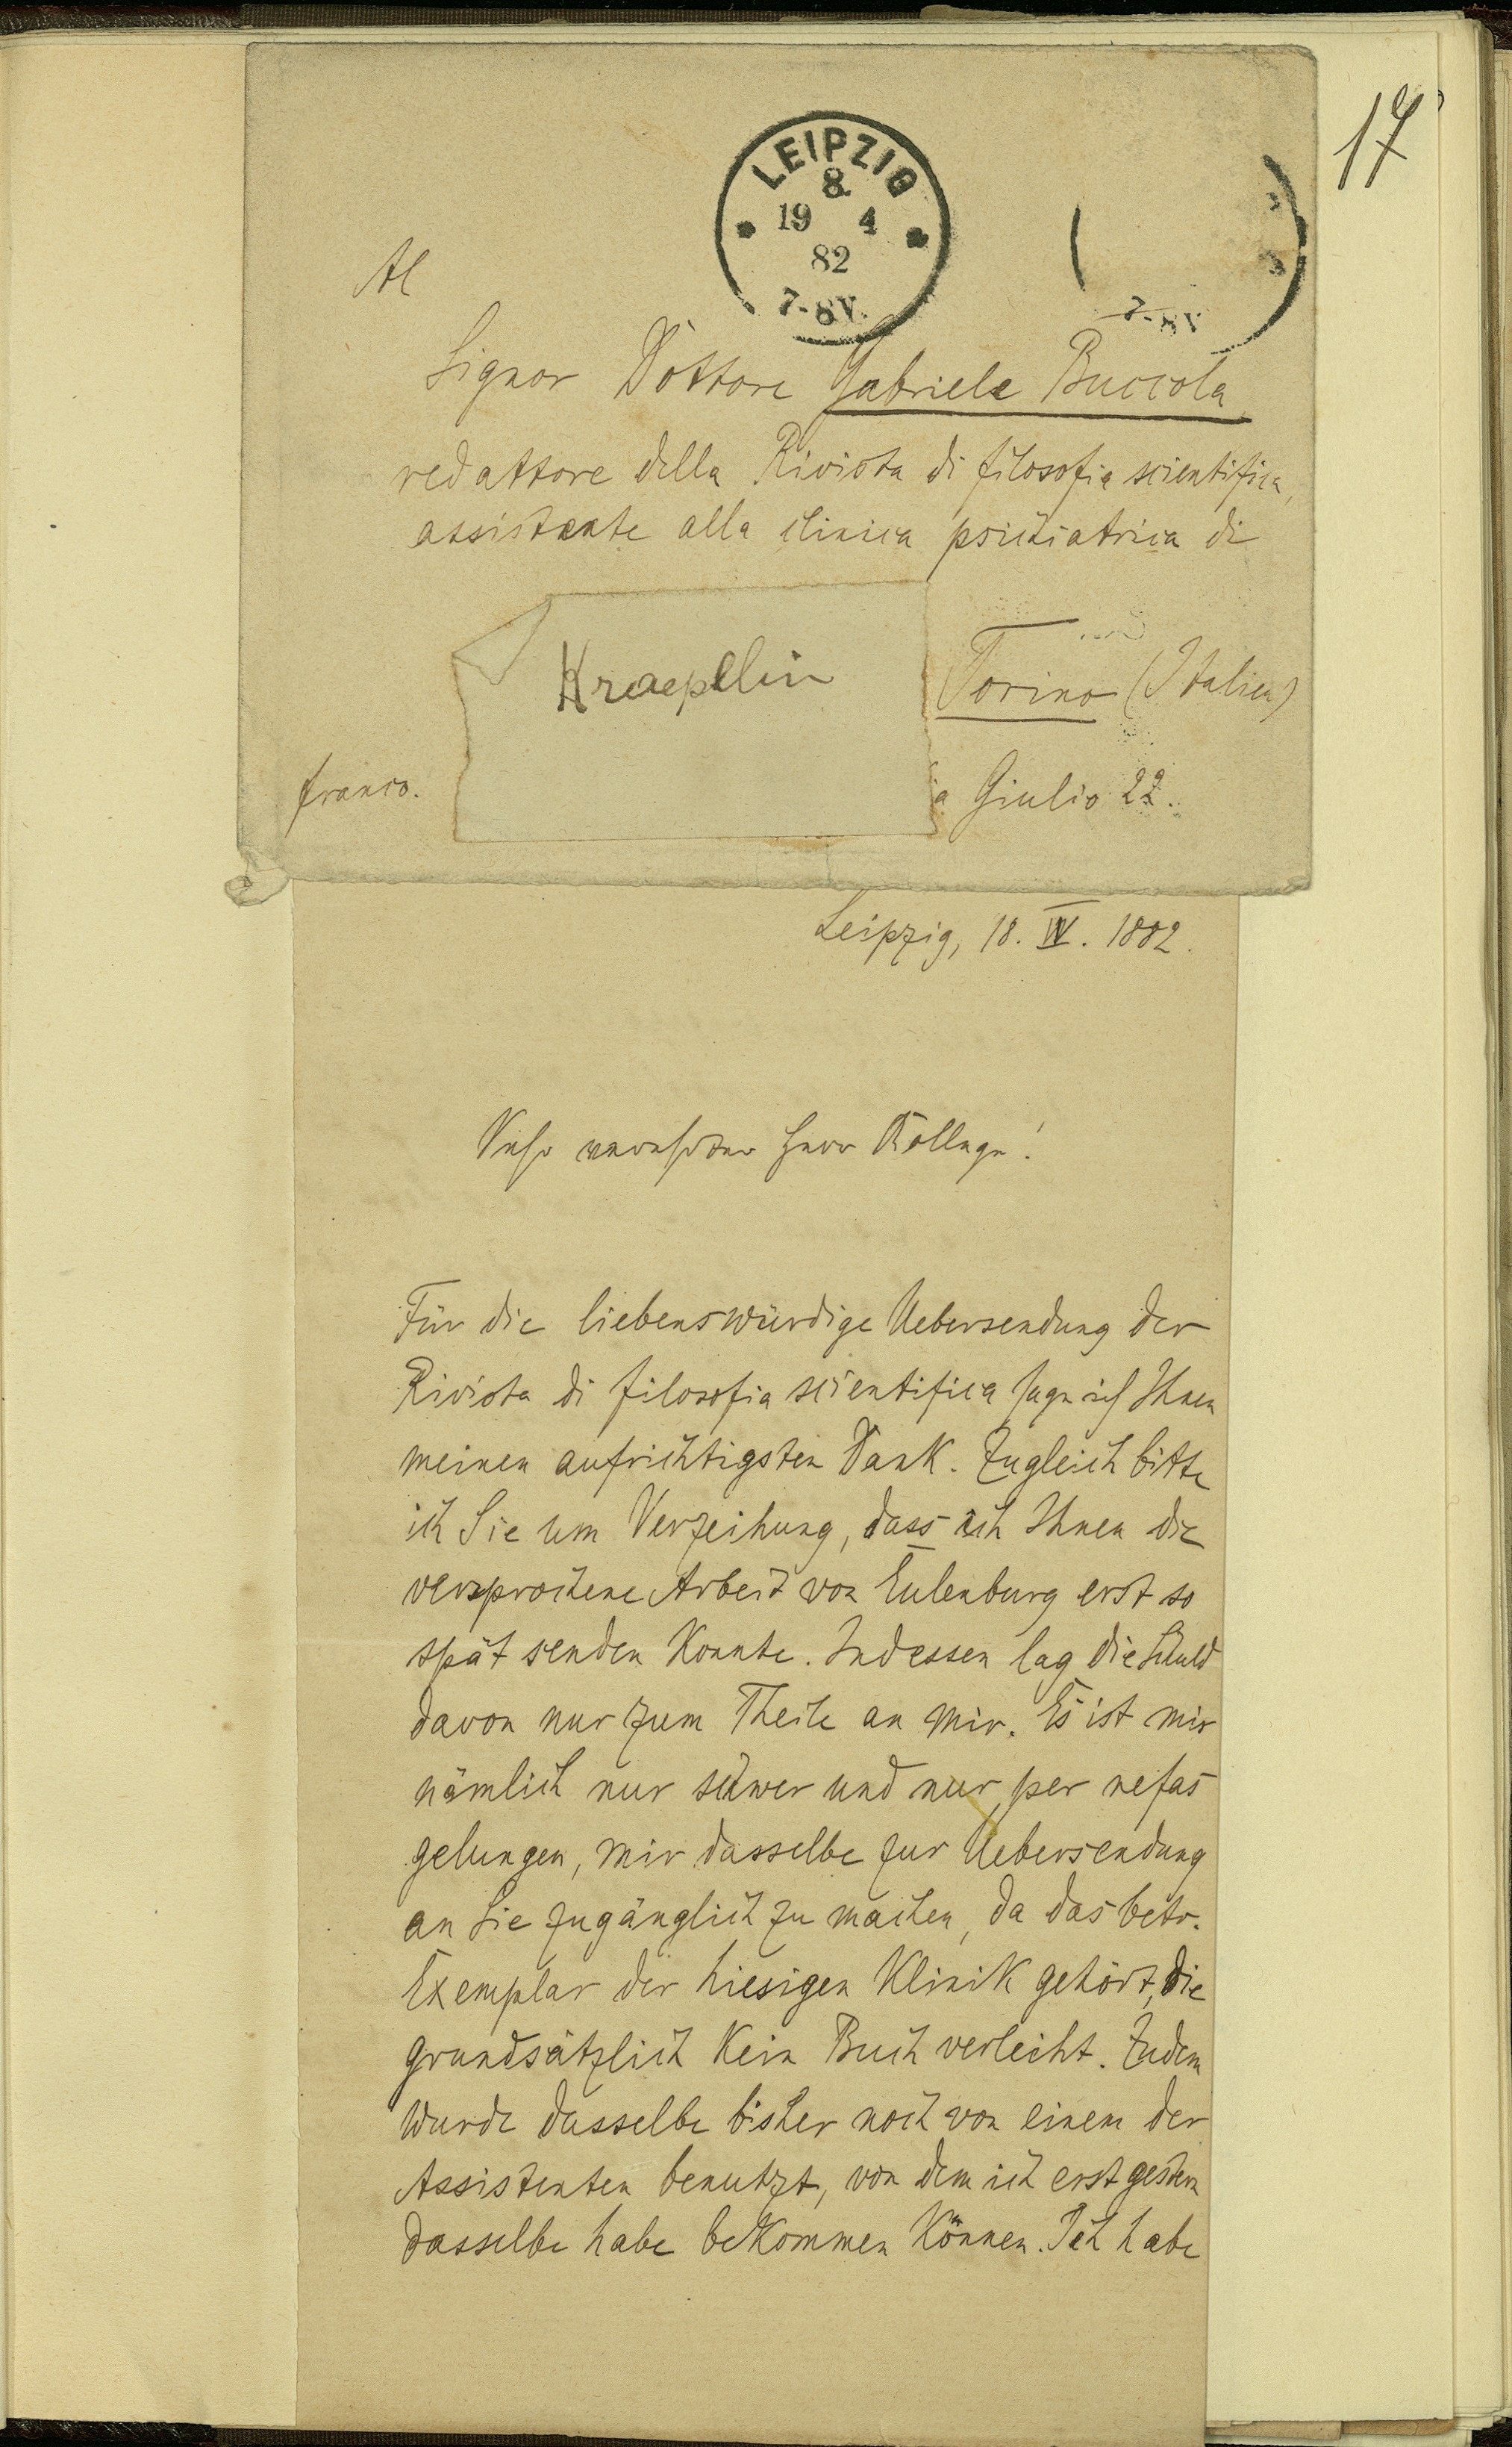 17
LEIPZIG
8.
19 4
82
7-8V.
7-8V
Al
Signor Dottore Gabriele Buccola
redattore della Rivista di filosofia scientifica,
assistente alla clinica psichiatrica di
Kraepelin
Torino (Italien)
franco.
a Giulio 22.
Leipzig, 18. IV. 1882.
Sehr verehrter Herr Kollege!
Für die liebenswürdige Uebersendung der
Rivista di filosofia scientifica sage ich Ihnen
meinen aufrichtigsten Dank. Zugleich bitte
ich Sie um Verzeihung, dass ich Ihnen die
versprochene Arbeit von Eulenburg erst so
spät senden konnte. Indessen lag die Schuld
davon nur zum Theile an mir. Es ist mir
nämlich nur schwer und nur per nefas
gelungen, mir dasselbe zur Uebersendung
an Sie zugänglich zu machen, da das betr.
Exemplar der hiesigen Klinik gehört, die
grundsätzlich kein Buch verleiht. Zudem
wurde dasselbe bisher noch von einem der
Assistenten benutzt, von dem ich erst gestern
dasselbe habe bekommen können. Ich habe